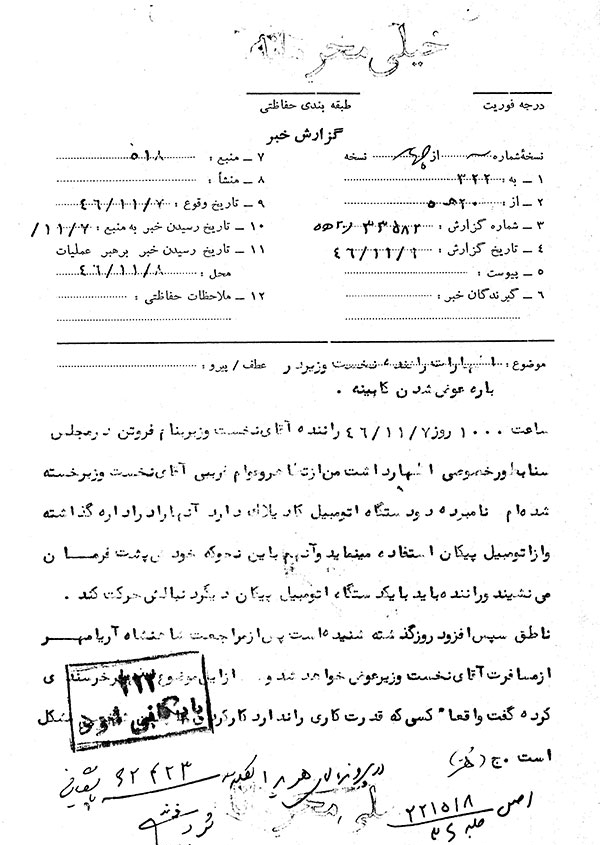 خیلی محرمانه
درجه فوریت
طبقه بندی حفاظتی
گزارش خبر
نسخهٔ شماره از چهار نسخه
۱ ــ به : ۳۲۲
۲ ــ از : ۲۰ ه ۵
۳ ــ شماره گزارش : ۳۳۵۸۲ / ۲۰ ه ۵
۴ ــ تاریخ گزارش : ۴۶/۱۱/۹
۵ ــ پیوست :
۶ ــ گیرندگان خبر :
۷ ــ منبع : ۵۱۸
۸ ــ منشأ :
۹ ــ تاریخ وقوع : ۴۶/۱۱/۷
۱۰ ــ تاریخ رسیدن خبر به منبع : ۱۱/۷/
۱۱ ــ تاریخ رسیدن خبر برهبر عملیات
محل : ۴۶/۱۱/۸
۱۲ ــ ملاحظات حفاظتی :
موضوع : اظهارات راننده نخست وزیر در عطف / پیرو :
باره عوض شدن کابینه .
ساعت ۱۰۰۰ روز ۴۶/۱۱/۷ راننده آقای نخست وزیر بنام فروتن در مجلس
سنا بطور خصوصی اظهار داشت من از تظاهر و عوام فریبی آقای نخست وزیر خسته
شده‌ام نامبرده دو دستگاه اتومبیل کادیلاک دارد آنها را در اداره گذاشته
و از اتومبیل پیکان استفاده مینماید و آنهم باین نحو که خودش پشت فرمان
می نشیند و راننده باید با یک ستگاه اتومبیل پیکان دیگر دنبالش حرکت کند .
ناطق سپس افزود روز گذشته شنیده است پس از مراجعت شاهنشاه آریامهر
از مسافرت آقای نخست وزیر عوض خواهد شد و از این موضوع خرسندی
کرده گفت واقعا" کسی که قدرت کاری را ندارد کار کردن مشکل
است . ج (هز)
۳۲۲
بایگانی شود
در پرونده ۶۲۴۲۳ بایگانی
اصل ۲۲۱۵۱۸
جلد ۳۶
خیلی محرمانه